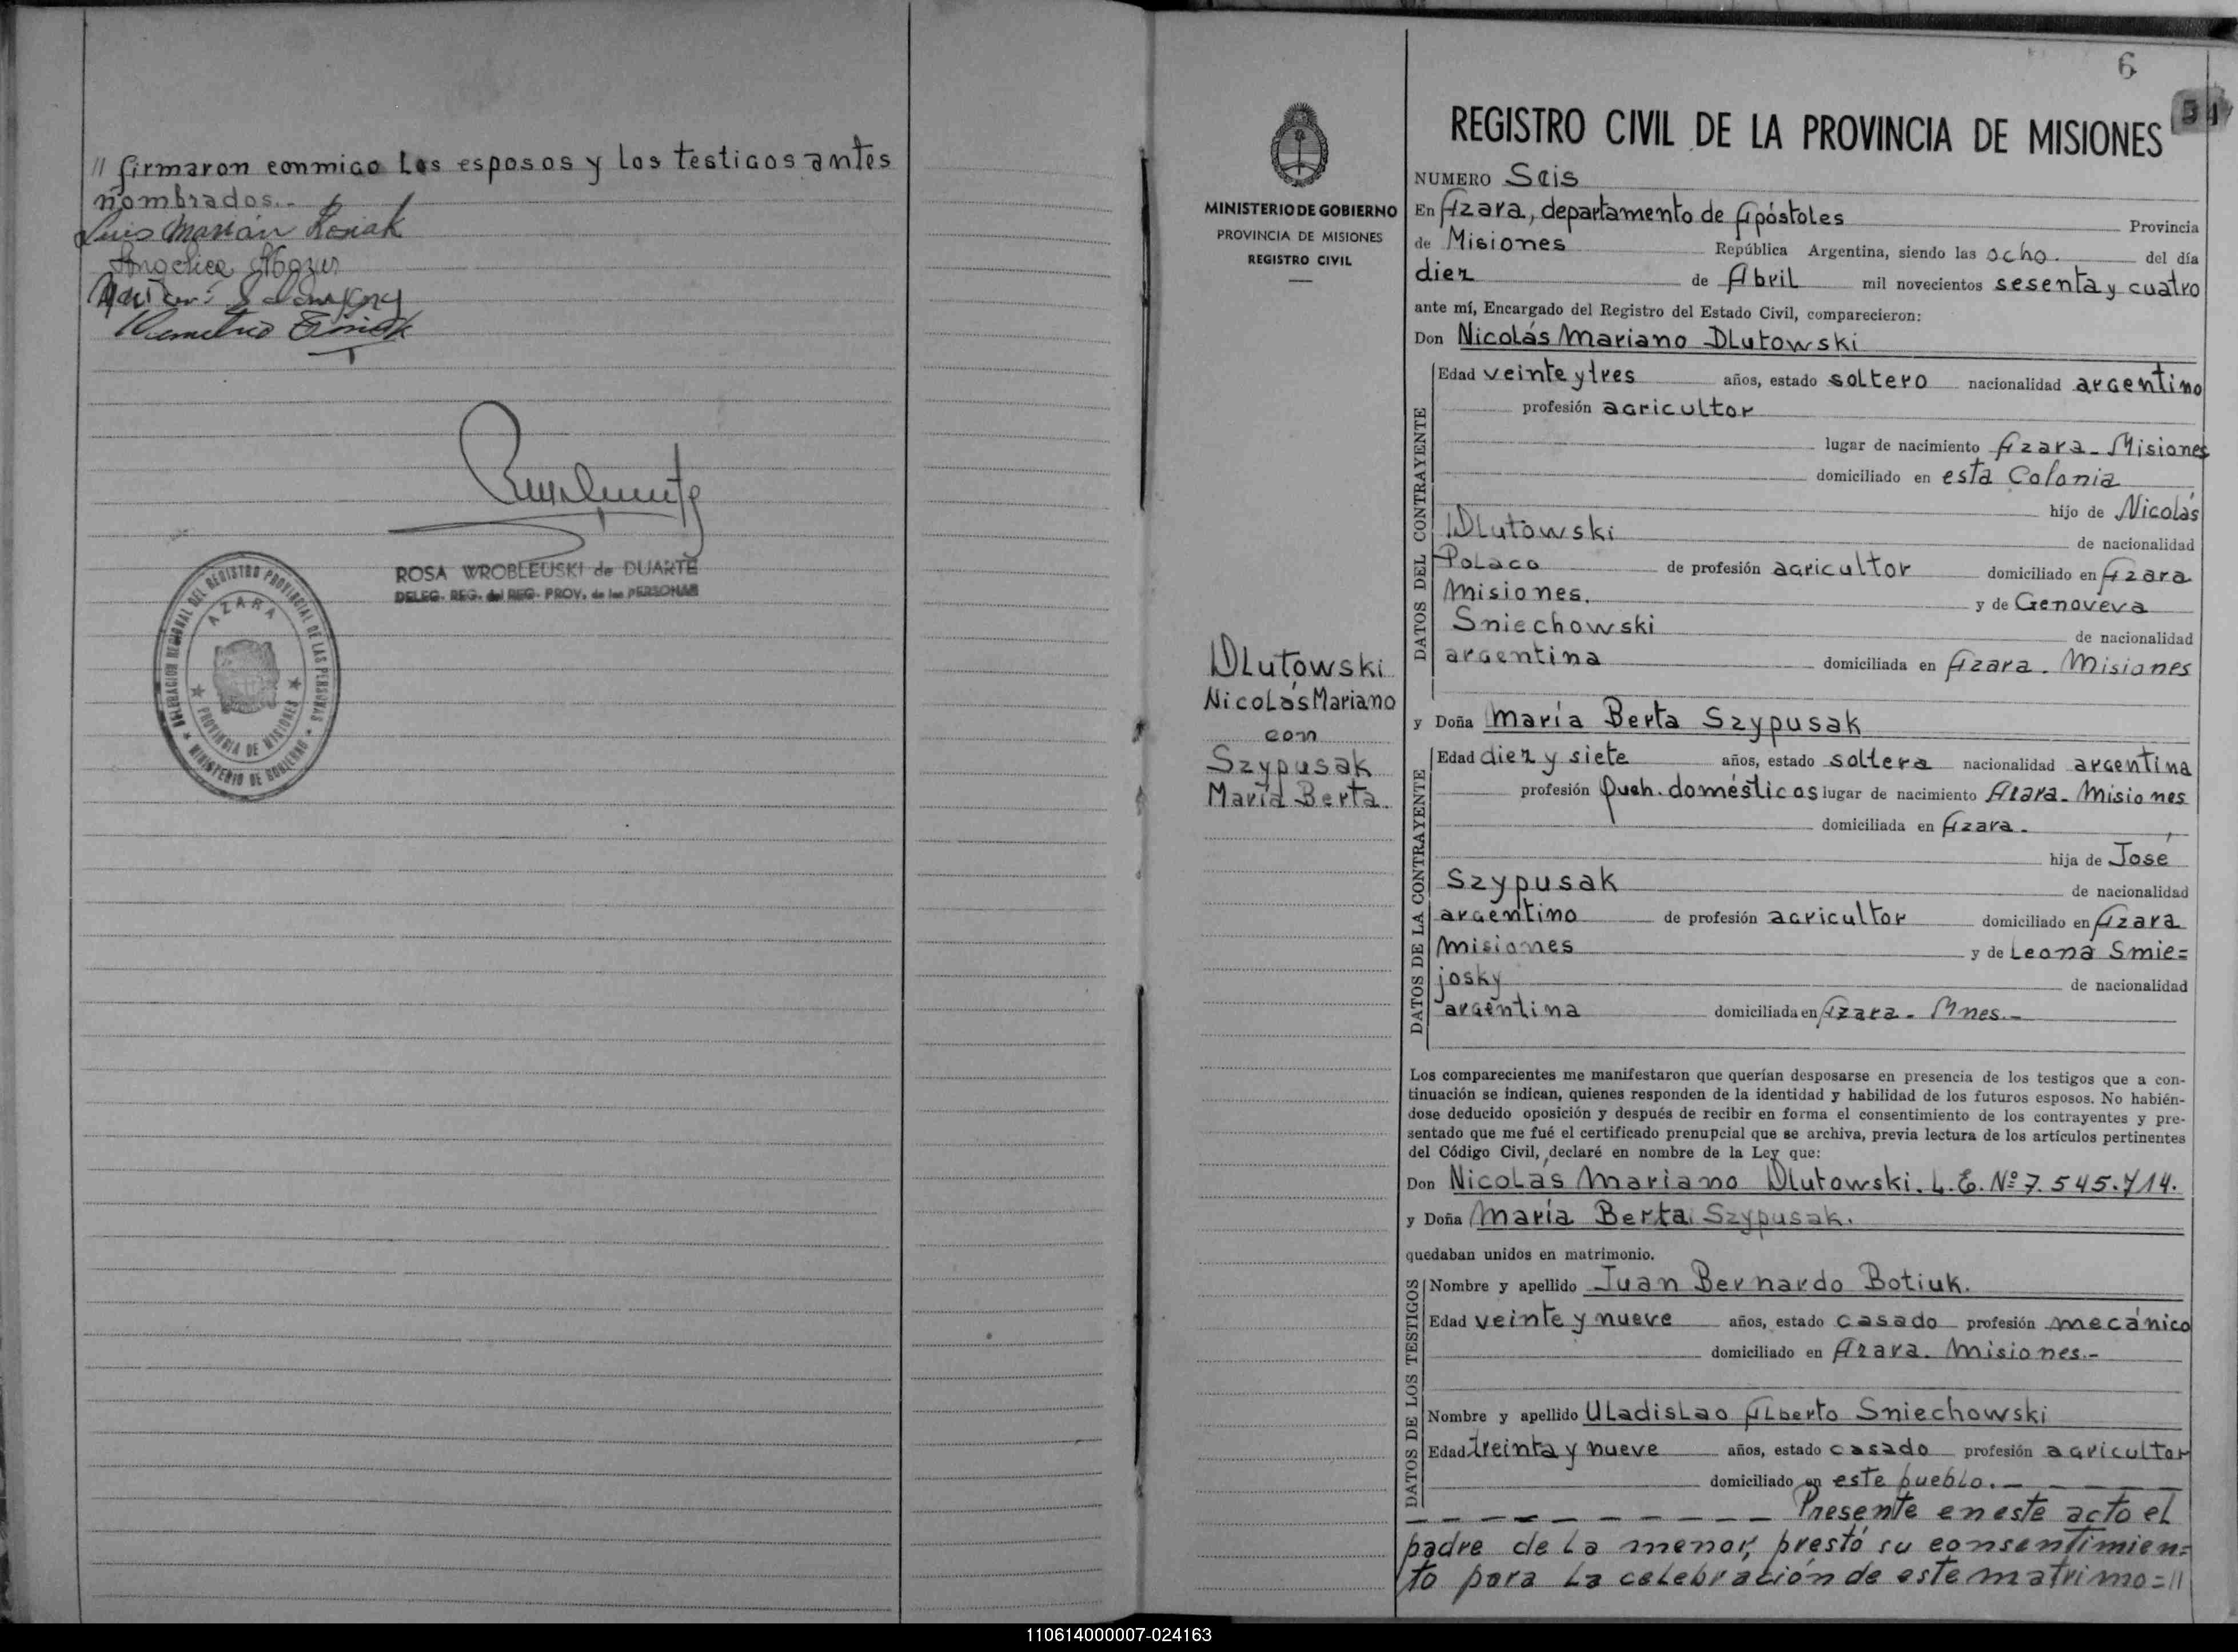 // firmaron conmigo los esposos y los testigos antes
nombrados.-
Luis Marián
Angélica
Demetrio
ROSA WROBLEUSKI de DUARTE
DELEG. REG. del REG. PROV. de las PERSONAS
DELEGACION REGIONAL DEL REGISTRO PROVINCIAL DE LAS PERSONAS
AZARA
PROVINCIA DE MISIONES
MINISTERIO DE GOBIERNO
6
REGISTRO CIVIL DE LA PROVINCIA DE MISIONES
MINISTERIO DE GOBIERNO
PROVINCIA DE MISIONES
REGISTRO CIVIL
DLutowski
Nicolás Mariano
con
Szypusak
María Berta.
NUMERO Seis
En Azara, departamento de Apóstoles Provincia
de Misiones República Argentina, siendo las ocho. del día
diez de Abril mil novecientos sesenta y cuatro
ante mí, Encargado del Registro del Estado Civil, comparecieron:
Don Nicolás Mariano DLutowski
DATOS DEL CONTRAYENTE
Edad veinte y tres años, estado soltero nacionalidad argentino
profesión agricultor
lugar de nacimiento Azara - Misiones
domiciliado en esta Colonia
hijo de Nicolás
DLutowski de nacionalidad
Polaca de profesión agricultor domiciliado en Azara
Misiones. y de Genoveva
Sniechowski de nacionalidad
argentina domiciliada en Azara - Misiones
y Doña María Berta Szypusak
DATOS DE LA CONTRAYENTE
Edad diez y siete años, estado soltera nacionalidad argentina
profesión Queh. domésticos lugar de nacimiento Azara - Misiones
domiciliada en Azara -
hija de José
Szypusak de nacionalidad
argentino de profesión agricultor domiciliado en Azara
Misiones y de Leona Smie=
josky de nacionalidad
argentina domiciliada en Azara - Mnes.-
Los comparecientes me manifestaron que querían desposarse en presencia de los testigos que a con-
tinuación se indican, quienes responden de la identidad y habilidad de los futuros esposos. No habién-
dose deducido oposición y después de recibir en forma el consentimiento de los contrayentes y pre-
sentado que me fué el certificado prenupcial que se archiva, previa lectura de los artículos pertinentes
del Código Civil, declaré en nombre de la Ley que:
Don Nicolás Mariano Dlutowski. L. E. Nº 7.545.714.
y Doña María Berta Szypusak.
quedaban unidos en matrimonio.
DATOS DE LOS TESTIGOS
Nombre y apellido Juan Bernardo Botiuk.
Edad veinte y nueve años, estado casado profesión mecánico
domiciliado en Azara - Misiones.-
Nombre y apellido Uladislao Alberto Sniechowski
Edad treinta y nueve años, estado casado profesión agricultor
domiciliado en este pueblo.-
Presente en este acto el
padre de la menor, prestó su consentimien=
to para la celebración de este matrimo=//
110614000007-024163